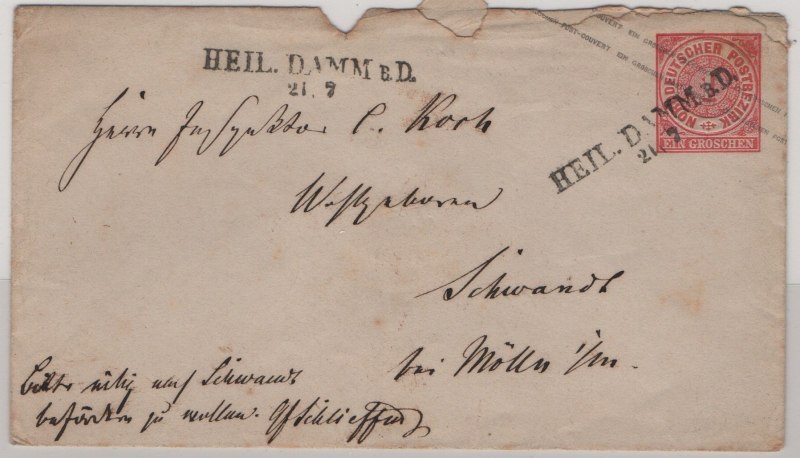 HEIL. DAMM B.D.
21. 7
POST-COUVERT EIN GROSCHEN
NORDDEUTSCHER POSTBEZIRK
EIN GROSCHEN
HEIL. DAMM B.D.
21. 7
Herrn Inspektor C. Koch
Wohlgeboren
Schwandt
bei Mölln i/m.
Bitte nach Schwandt
befördern zu wollen. GfSchlieffen